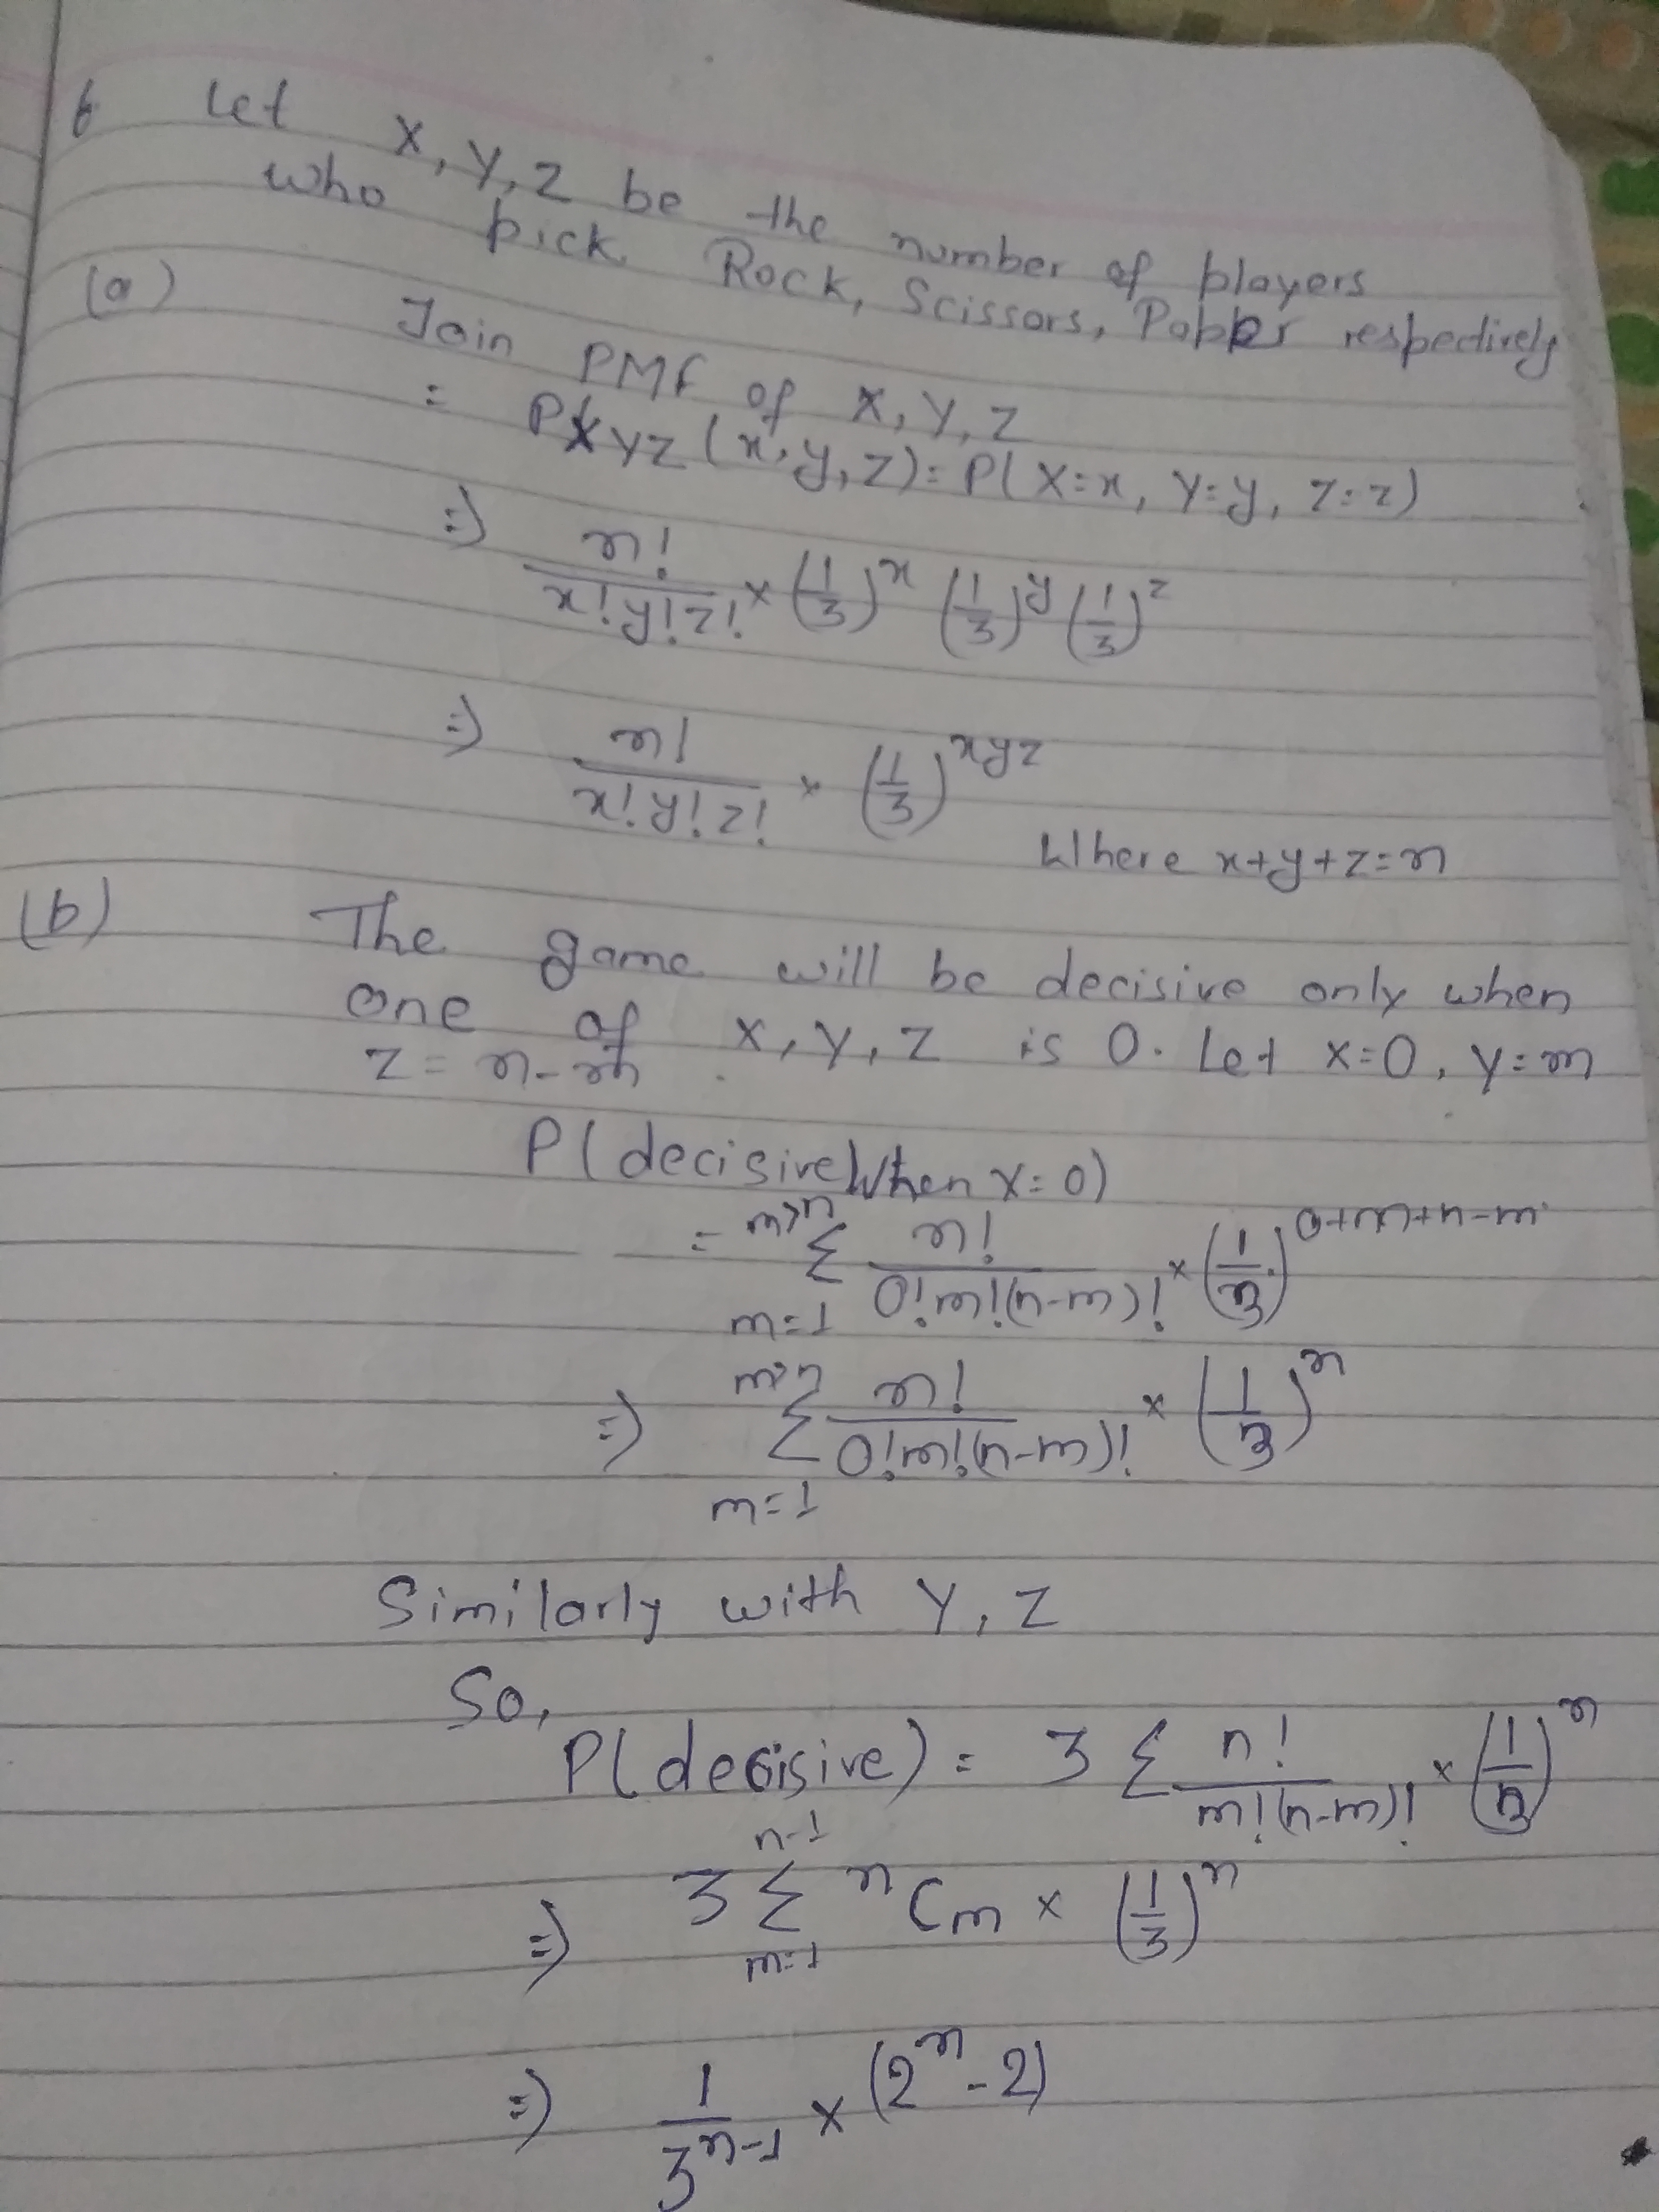 6 Let X, Y, Z be the number of players
who pick Rock, Scissors, Papper respectively
(a) Join PMF of X, Y, Z
= PXYZ (x, y, z) = P(X=x, Y=y, Z=z)
=) n!/(x!y!z!) × (1/3)^x (1/3)^y (1/3)^z
=) n!/(x!y!z!) × (1/3)^xyz
Where x+y+z=n
(b) The game will be decisive only when
one of X, Y, Z is 0. Let X=0, Y=m
Z = n-m
P(decisive When X=0)
= Σ n!/(0!m!(n-m)!) × (1/3)^0+m+n-m
m=1
=) Σ n!/(0!m!(n-m)!) × (1/3)^n
m=1
Similarly with Y, Z
So,
P(decisive) = 3 Σ n!/(m!(n-m)!) × (1/3)^n
n-1
=) 3 Σ nCm × (1/3)^n
m=1
=) 1/3^n-1 × (2^n - 2)